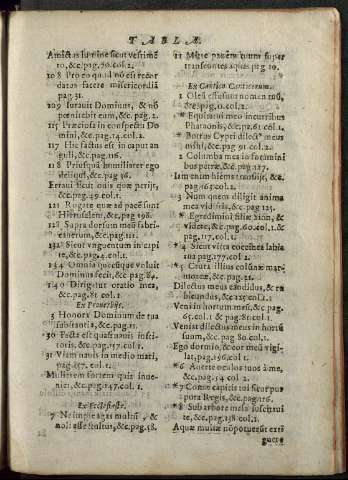 TABLA.
Amictus lumine sicut vestimẽ
to, &c. pag. 70. col. 2.
108 Pro eo quod nõ est recor
datus facere misericordiã
pag. 31.
109 Iurauit Dominus, & nõ
pœnitebit eum, &c. pag. 2.
115 Preciosa in conspectu Do
mini, &c. pag. 14. col. 2.
117 Hic factus est in caput an
guli, &c. pag. 116.
118 Priusquã humiliarer ego
deliqui, &c. pag 36.
Erraui sicut ouis quæ perijt,
&c. pag. 49. col. 1.
121 Rogate quæ ad pacẽ sunt
Hierusalem, &c. pag 198.
128 Supra dorsum meũ fabri-
cauerunt, &c. pag 111.
132 Sicut vnguentum in capi
te, &c. pag. col. 1.
134 Omnia quæcũque voluit
Dominus fecit, &c. pag 84.
140 Dirigatur oratio mea,
&c. pag. 81. col. 1.
Ex Prouerbijs.
3 Honora Dominum de tua
substantia, &c. pag. 11.
30 Facta est quasi nauis insti-
toris, &c. pag. 157. col. 1.
31 Viam nauis in medio mari,
pag. 157. col. 1.
Mulierem fortem quis inue-
niet, &c. pag. 147. col. 1.
Ex Ecclesiaste.
7 Ne impie agas multũ, &
noli esse stultus, &c. pag. 58.
11 Mitte panem tuum super
transeuntes aquas pag 10.
Ex Cantico Canticorum.
1 Oleũ effusum nomen tuũ,
&c. pag. 1. col. 2.
* Equitatui meo in curribus
Pharaonis, &c. pag. 61 col. 1
* Botrus Cypri dilectꝰ meus
mihi, &c. pag. 91 col. 2.
2 Columba mea in foramini
bus petræ, &c. pag. 127.
Iam enim hiems transijt, &c.
pag. 165 col. 2.
3 Num quem diligit anima
mea vidistis, &c. pag. 125.
* Egredimini filiæ Sion, &
videte, &c. pag. 60. col. 1. &
pag. 117. col. 2.
* 4 Sicut vitta coccinea labia
tua pag. 177. col. 2
* 5 Crura illius colũnæ mar-
moreæ, &c. pag. 21.
Dilectus meus candidus, & ru
bicundus, &c. 125 col. 2
Veni in hortum meũ, &c. pag.
65. col. 1 & pag 81. col. 1.
Veniat dilectus meus in hortũ
suum, &c. pag. 80 col. 2.
Ego dormio, & cor meũ vigi-
lat, pag. 156. col. 1.
* 6 Auerte oculos tuos à me,
&c. pag. 54 col 2.
* 7 Comæ capitis tui sicut pur
pura Regis, &c. pag. 126.
* 8 Sub arbore malo suscitaui
te, &c. pag. 138 col. 1.
Aquæ multæ nõ potuerũt exti
guere